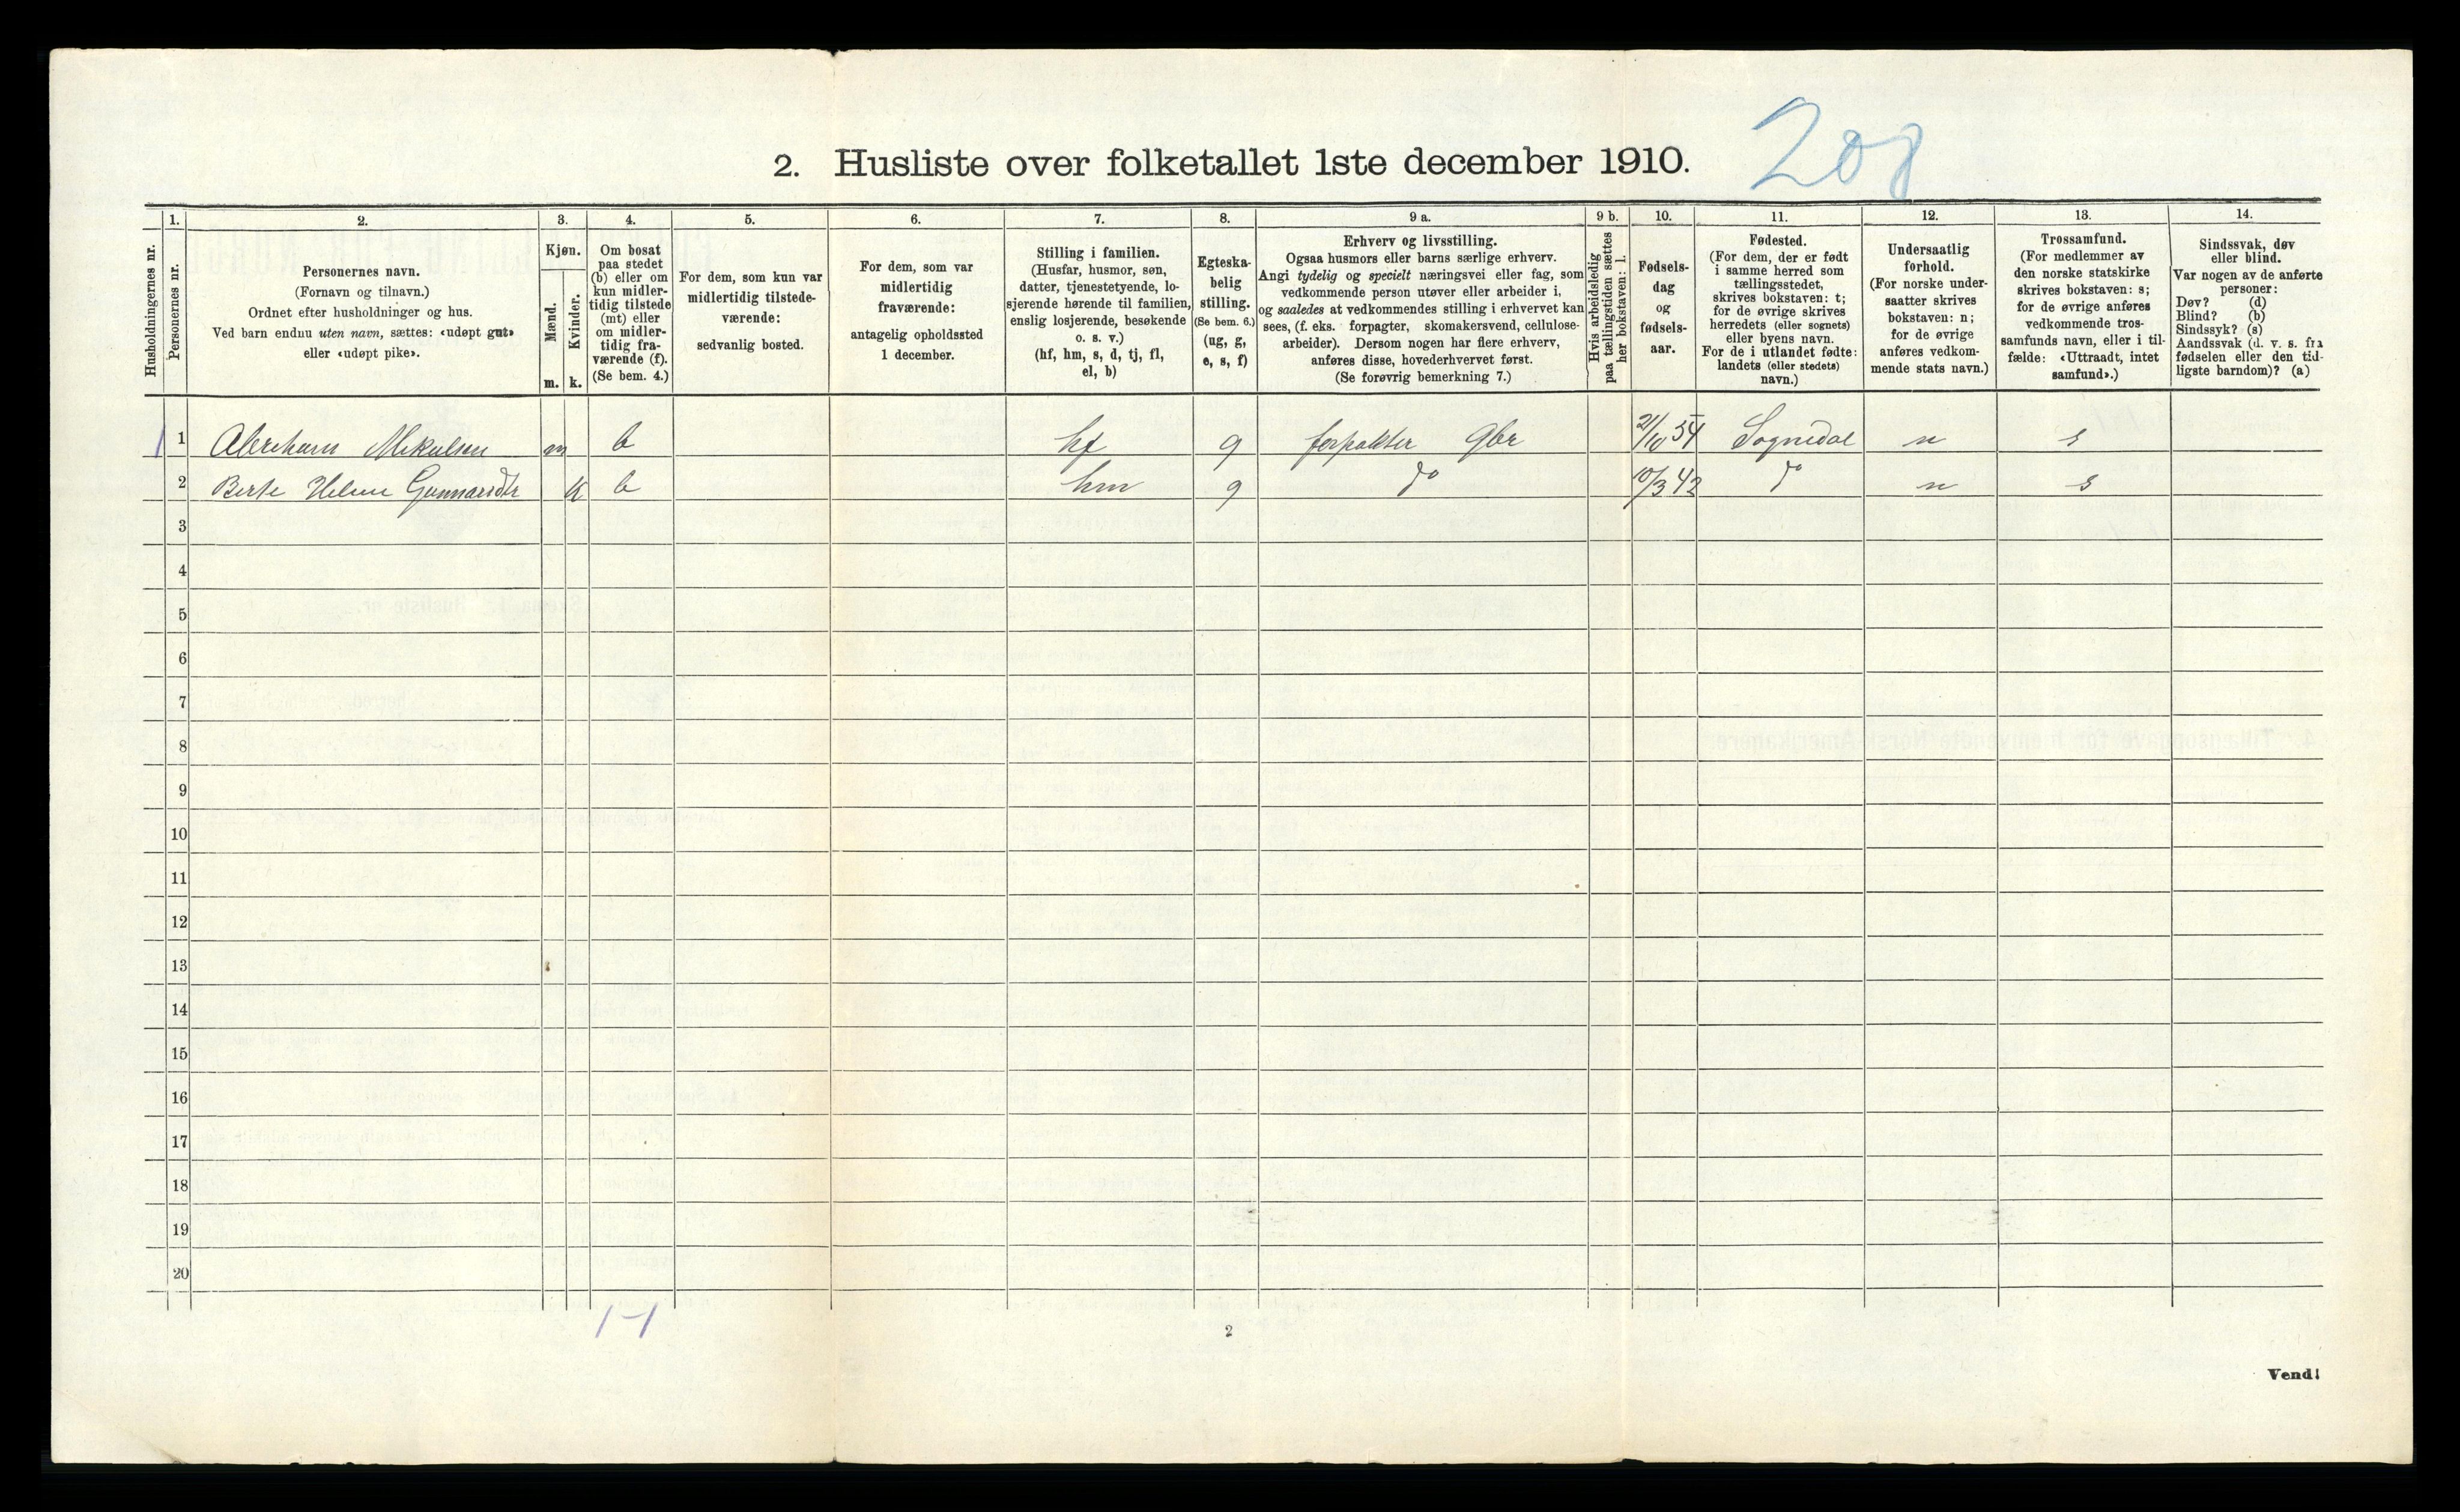 208
2. Husliste over folketallet 1ste december 1910.
Husholdningernes nr.
1.
Personernes nr.
2.
Personernes navn.
(Fornavn og tilnavn.)
Ordnet efter husholdninger og hus.
Ved barn endnu uten navn, sættes: «udøpt gut»
eller «udøpt pike».
3.
Kjøn.
Mænd.
Kvinder.
m. k.
4.
Om bosat
paa stedet
(b) eller om
kun midler-
tidig tilstede
(mt) eller
om midler-
tidig fra-
værende (f).
(Se bem. 4.)
5.
For dem, som kun var
midlertidig tilstede-
værende:
sedvanlig bosted.
6.
For dem, som var
midlertidig
fraværende:
antagelig opholdssted
1 december.
7.
Stilling i familien.
(Husfar, husmor, søn,
datter, tjenestetyende, lo-
sjerende hørende til familien,
enslig losjerende, besøkende
o. s. v.)
(hf, hm, s, d, tj, fl,
el, b)
8.
Egteska-
belig
stilling.
(Se bem. 6.)
(ug, g,
e, s, f)
9 a.
Erhverv og livsstilling.
Ogsaa husmors eller barns særlige erhverv.
Angi tydelig og specielt næringsvei eller fag, som
vedkommende person utøver eller arbeider i,
og saaledes at vedkommendes stilling i erhvervet kan
sees, (f. eks. forpagter, skomakersvend, cellulose-
arbeider). Dersom nogen har flere erhverv,
anføres disse, hovederhvervet først.
(Se forøvrig bemerkning 7.)
9 b.
Hvis arbeidsledig
paa tællingstiden sættes
her bokstaven: l.
10.
Fødsels-
dag
og
fødsels-
aar.
11.
Fødested.
(For dem, der er født
i samme herred som
tællingsstedet,
skrives bokstaven: t;
for de øvrige skrives
herredets (eller sognets)
eller byens navn.
For de i utlandet fødte:
landets (eller stedets)
navn.)
12.
Undersaatlig
forhold.
(For norske under-
saatter skrives
bokstaven: n;
for de øvrige
anføres vedkom-
mende stats navn.)
13.
Trossamfund.
(For medlemmer av
den norske statskirke
skrives bokstaven: s;
for de øvrige anføres
vedkommende tros-
samfunds navn, eller i til-
fælde: «Uttraadt, intet
samfund».)
14.
Sindssvak, døv
eller blind.
Var nogen av de anførte
personer:
Døv? (d)
Blind? (b)
Sindssyk? (s)
Aandssvak (d. v. s. fra
fødselen eller den tid-
ligste barndom)? (a)
1 Abreham Mikalsen m b hf g forpakter Gbr 21/10 54 Sogndal n s
2 Berte Helene Gunnarsdtr k b hm g do 10/3 42 do n s
3
4
5
6
7
8
9
10
11
12
13
14
15
16
17
18
19
20
1-1
2
Vend!